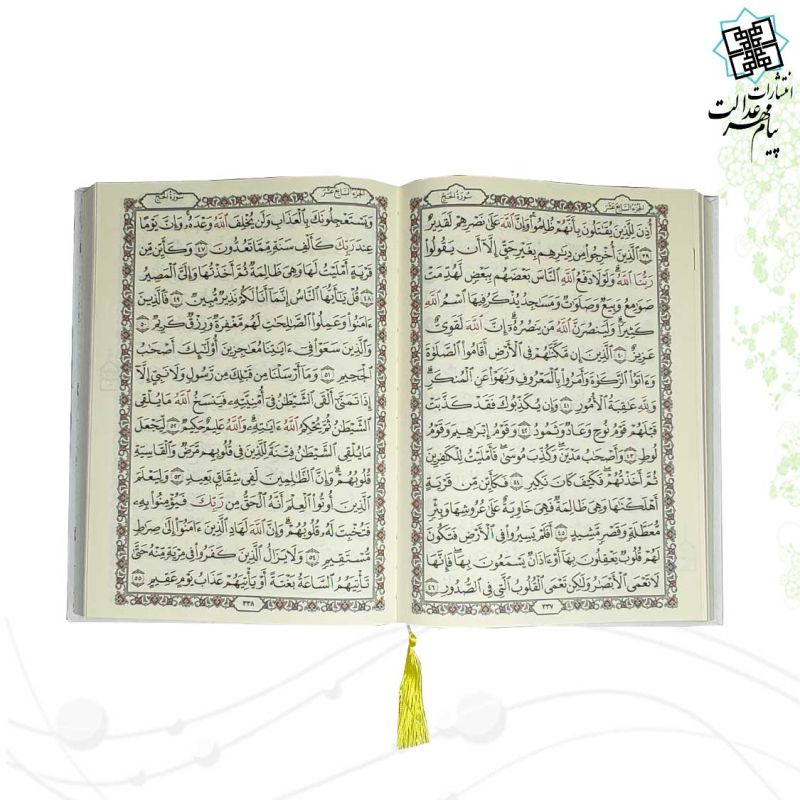 انتشارات
پیام مهر عدالت
الجزء السابع عشر
سورة الحج
أُذِنَ لِلَّذِينَ يُقَٰتَلُونَ بِأَنَّهُمْ ظُلِمُوا۟ وَإِنَّ ٱللَّهَ عَلَىٰ نَصْرِهِمْ لَقَدِيرٌ
٣٩ ٱلَّذِينَ أُخْرِجُوا۟ مِن دِيَٰرِهِم بِغَيْرِ حَقٍّ إِلَّآ أَن يَقُولُوا۟
رَبُّنَا ٱللَّهُ وَلَوْلَا دَفْعُ ٱللَّهِ ٱلنَّاسَ بَعْضَهُم بِبَعْضٍ لَّهُدِّمَتْ
صَوَٰمِعُ وَبِيَعٌ وَصَلَوَٰتٌ وَمَسَٰجِدُ يُذْكَرُ فِيهَا ٱسْمُ ٱللَّهِ
كَثِيرًا وَلَيَنصُرَنَّ ٱللَّهُ مَن يَنصُرُهُۥٓ إِنَّ ٱللَّهَ لَقَوِىٌّ
عَزِيزٌ ٤٠ ٱلَّذِينَ إِن مَّكَّنَّٰهُمْ فِى ٱلْأَرْضِ أَقَامُوا۟ ٱلصَّلَوٰةَ
وَءَاتَوُا۟ ٱلزَّكَوٰةَ وَأَمَرُوا۟ بِٱلْمَعْرُوفِ وَنَهَوْا۟ عَنِ ٱلْمُنكَرِ
وَلِلَّهِ عَٰقِبَةُ ٱلْأُمُورِ ٤١ وَإِن يُكَذِّبُوكَ فَقَدْ كَذَّبَتْ
قَبْلَهُمْ قَوْمُ نُوحٍ وَعَادٌ وَثَمُودُ ٤٢ وَقَوْمُ إِبْرَٰهِيمَ وَقَوْمُ
لُوطٍ ٤٣ وَأَصْحَٰبُ مَدْيَنَ وَكُذِّبَ مُوسَىٰ فَأَمْلَيْتُ لِلْكَٰفِرِينَ
ثُمَّ أَخَذْتُهُمْ فَكَيْفَ كَانَ نَكِيرِ ٤٤ فَكَأَيِّن مِّن قَرْيَةٍ
أَهْلَكْنَٰهَا وَهِىَ ظَالِمَةٌ فَهِىَ خَاوِيَةٌ عَلَىٰ عُرُوشِهَا وَبِئْرٍ
مُّعَطَّلَةٍ وَقَصْرٍ مَّشِيدٍ ٤٥ أَفَلَمْ يَسِيرُوا۟ فِى ٱلْأَرْضِ فَتَكُونَ
لَهُمْ قُلُوبٌ يَعْقِلُونَ بِهَآ أَوْ ءَاذَانٌ يَسْمَعُونَ بِهَا فَإِنَّهَا
لَا تَعْمَى ٱلْأَبْصَٰرُ وَلَٰكِن تَعْمَى ٱلْقُلُوبُ ٱلَّتِى فِى ٱلصُّدُورِ ٤٦
٣٣٧
سورة الحج
الجزء السابع عشر
وَيَسْتَعْجِلُونَكَ بِٱلْعَذَابِ وَلَن يُخْلِفَ ٱللَّهُ وَعْدَهُۥ وَإِنَّ يَوْمًا
عِندَ رَبِّكَ كَأَلْفِ سَنَةٍ مِّمَّا تَعُدُّونَ ٤٧ وَكَأَيِّن مِّن
قَرْيَةٍ أَمْلَيْتُ لَهَا وَهِىَ ظَالِمَةٌ ثُمَّ أَخَذْتُهَا وَإِلَىَّ ٱلْمَصِيرُ
٤٨ قُلْ يَٰٓأَيُّهَا ٱلنَّاسُ إِنَّمَآ أَنَا۠ لَكُمْ نَذِيرٌ مُّبِينٌ ٤٩ فَٱلَّذِينَ
ءَامَنُوا۟ وَعَمِلُوا۟ ٱلصَّٰلِحَٰتِ لَهُم مَّغْفِرَةٌ وَرِزْقٌ كَرِيمٌ ٥٠
وَٱلَّذِينَ سَعَوْا۟ فِىٓ ءَايَٰتِنَا مُعَٰجِزِينَ أُو۟لَٰٓئِكَ أَصْحَٰبُ
ٱلْجَحِيمِ ٥١ وَمَآ أَرْسَلْنَا مِن قَبْلِكَ مِن رَّسُولٍ وَلَا نَبِىٍّ إِلَّآ
إِذَا تَمَنَّىٰٓ أَلْقَى ٱلشَّيْطَٰنُ فِىٓ أُمْنِيَّتِهِۦ فَيَنسَخُ ٱللَّهُ مَا يُلْقِى
ٱلشَّيْطَٰنُ ثُمَّ يُحْكِمُ ٱللَّهُ ءَايَٰتِهِۦ وَٱللَّهُ عَلِيمٌ حَكِيمٌ ٥٢ لِّيَجْعَلَ
مَا يُلْقِى ٱلشَّيْطَٰنُ فِتْنَةً لِّلَّذِينَ فِى قُلُوبِهِم مَّرَضٌ وَٱلْقَاسِيَةِ
قُلُوبُهُمْ وَإِنَّ ٱلظَّٰلِمِينَ لَفِى شِقَاقٍۭ بَعِيدٍ ٥٣ وَلِيَعْلَمَ
ٱلَّذِينَ أُوتُوا۟ ٱلْعِلْمَ أَنَّهُ ٱلْحَقُّ مِن رَّبِّكَ فَيُؤْمِنُوا۟ بِهِۦ
فَتُخْبِتَ لَهُۥ قُلُوبُهُمْ وَإِنَّ ٱللَّهَ لَهَادِ ٱلَّذِينَ ءَامَنُوٓا۟ إِلَىٰ صِرَٰطٍ
مُّسْتَقِيمٍ ٥٤ وَلَا يَزَالُ ٱلَّذِينَ كَفَرُوا۟ فِى مِرْيَةٍ مِّنْهُ حَتَّىٰ
تَأْتِيَهُمُ ٱلسَّاعَةُ بَغْتَةً أَوْ يَأْتِيَهُمْ عَذَابُ يَوْمٍ عَقِيمٍ ٥٥
٣٣٨